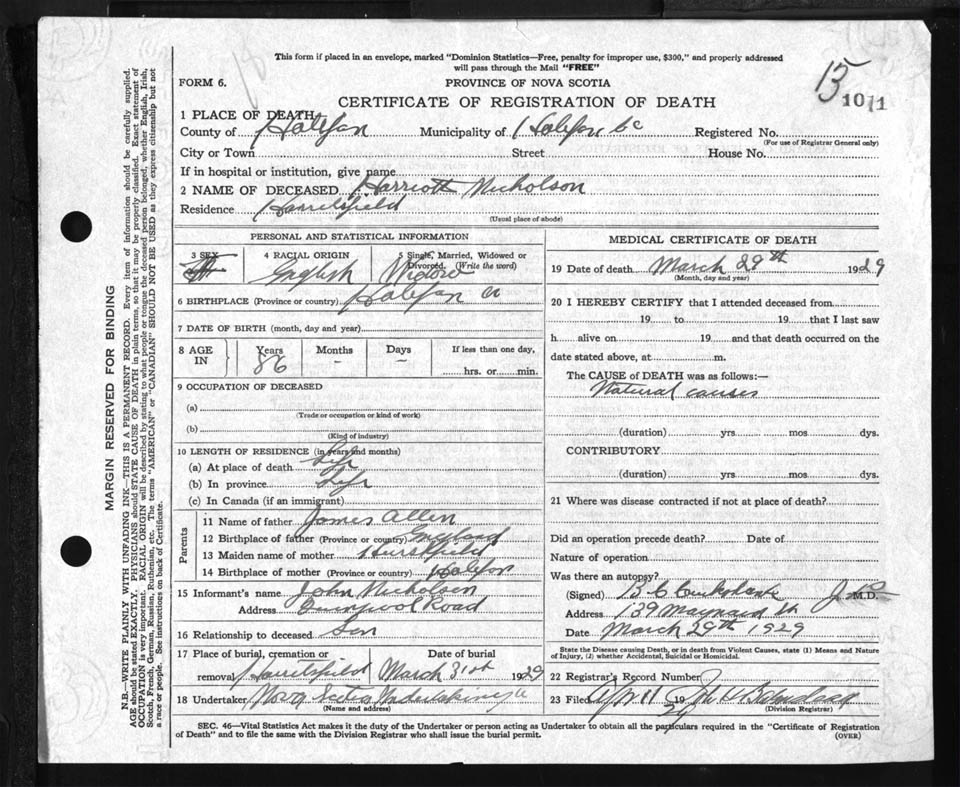 This form if placed in an envelope, marked "Dominion Statistics—Free, penalty for improper use, $300," and properly addressed
will pass through the Mail "FREE"
FORM 6.
PROVINCE OF NOVA SCOTIA
15
1011
CERTIFICATE OF REGISTRATION OF DEATH
1 PLACE OF DEATH
County of Halifax Municipality of Halifax Co Registered No.
(For use of Registrar General only)
City or Town Street House No.
If in hospital or institution, give name
2 NAME OF DECEASED Harriott Nicholson
Residence Harrietsfield
(Usual place of abode)
PERSONAL AND STATISTICAL INFORMATION
3 SEX
4 RACIAL ORIGIN English
5 Single, Married, Widowed or Divorced. (Write the word) Widow
6 BIRTHPLACE (Province or country) Halifax Co
7 DATE OF BIRTH (month, day and year)
8 AGE IN Years 86 Months – Days – If less than one day, hrs. or min.
9 OCCUPATION OF DECEASED
(a)
(Trade or occupation or kind of work)
(b)
(Kind of industry)
10 LENGTH OF RESIDENCE (in years and months)
(a) At place of death Life
(b) In province Life
(c) In Canada (if an immigrant)
Parents
11 Name of father James Allen
12 Birthplace of father (Province or country) England
13 Maiden name of mother
14 Birthplace of mother (Province or country) Halifax
15 Informant's name John Nicholson
Address Quinpool Road
16 Relationship to deceased Son
17 Place of burial, cremation or Date of burial
removal Harrietsfield March 31st 1929
18 Undertaker Nova Scotia Undertaking Co
(Name and address)
MEDICAL CERTIFICATE OF DEATH
19 Date of death March 28th 1929
(Month, day and year)
20 I HEREBY CERTIFY that I attended deceased from
19 to 19 that I last saw
h alive on 19 and that death occurred on the
date stated above, at m.
The CAUSE of DEATH was as follows:—
Natural causes
(duration) yrs mos dys.
CONTRIBUTORY
(duration) yrs mos dys.
21 Where was disease contracted if not at place of death?
Did an operation precede death? Date of
Nature of operation
Was there an autopsy?
(Signed) M.D.
Address 139 Maynard St
Date March 29th 1929
State the Disease causing Death, or in Death from Violent Causes, state (1) Means and Nature
of Injury, (2) whether Accidental, Suicidal or Homicidal.
22 Registrar's Record Number
23 Filed Apr 11 19 29
(Division Registrar)
SEC. 46—Vital Statistics Act makes it the duty of the Undertaker or person acting as Undertaker to obtain all the particulars required in the "Certificate of Registration
of Death" and to file the same with the Division Registrar who shall issue the burial permit.
(OVER)
MARGIN RESERVED FOR BINDING
N.B.—WRITE PLAINLY WITH UNFADING INK—THIS IS A PERMANENT RECORD. Every item of information should be carefully supplied.
AGE should be stated EXACTLY. PHYSICIANS should STATE CAUSE OF DEATH in plain terms, so that it may be properly classified. Exact statement of
OCCUPATION is very important. RACIAL ORIGIN will be described by stating to what people or tongue the deceased person belonged, whether English, Irish,
Scotch, French, German, Russian, Ruthenian, etc. The terms "AMERICAN" or "CANADIAN" SHOULD NOT BE USED as they express citizenship but not
a race or people. See instructions on back of Certificate.